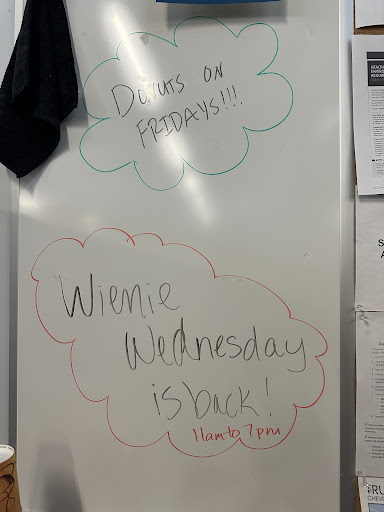 DONUTS ON
FRIDAYS!!!
Wienie
Wednesday
is back!
11am to 7pm